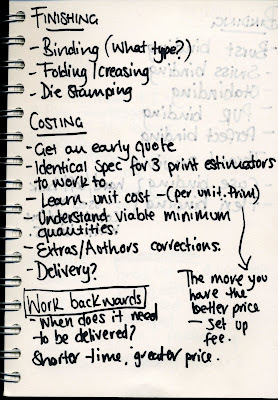 FINISHING
- Binding (What type?)
- Folding/Creasing
- Die Stamping
COSTING
- Get an early quote
- Identical Spec for 3 print estimators
to work to.
- Learn unit cost - (per unit. Print)
- Understand viable minimum
quantities.
- Extras/Authors corrections.
- Delivery?
The move you
have the
better price
- set up
fee.
Work backwards
- When does it need
to be delivered?
Shorter time, greater price.